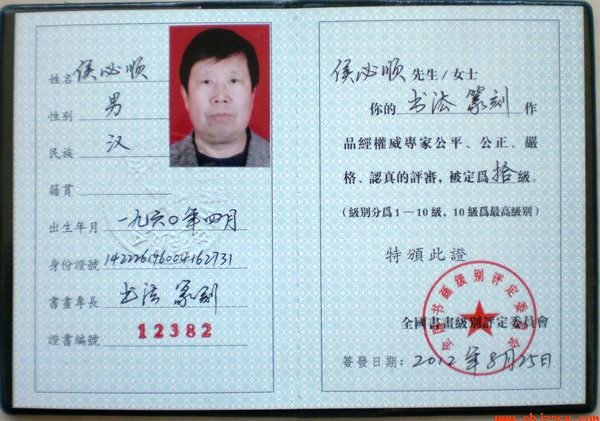 姓名 侯必顺
性别 男
民族 汉
籍貫
出生年月 一九六〇年四月
身份證號 142226196004162731
書畫專長 书法 篆刻
證書編號 12382
侯必顺 先生/女士
你的 书法 篆刻 作
品經權威專家公平、公正、嚴
格、認真的評審，被定爲 拾 級。
（級别分爲1—10級，10級爲最高級别）
特頒此證
全國書畫級别評定委員會
簽發日期：2012年8月25日